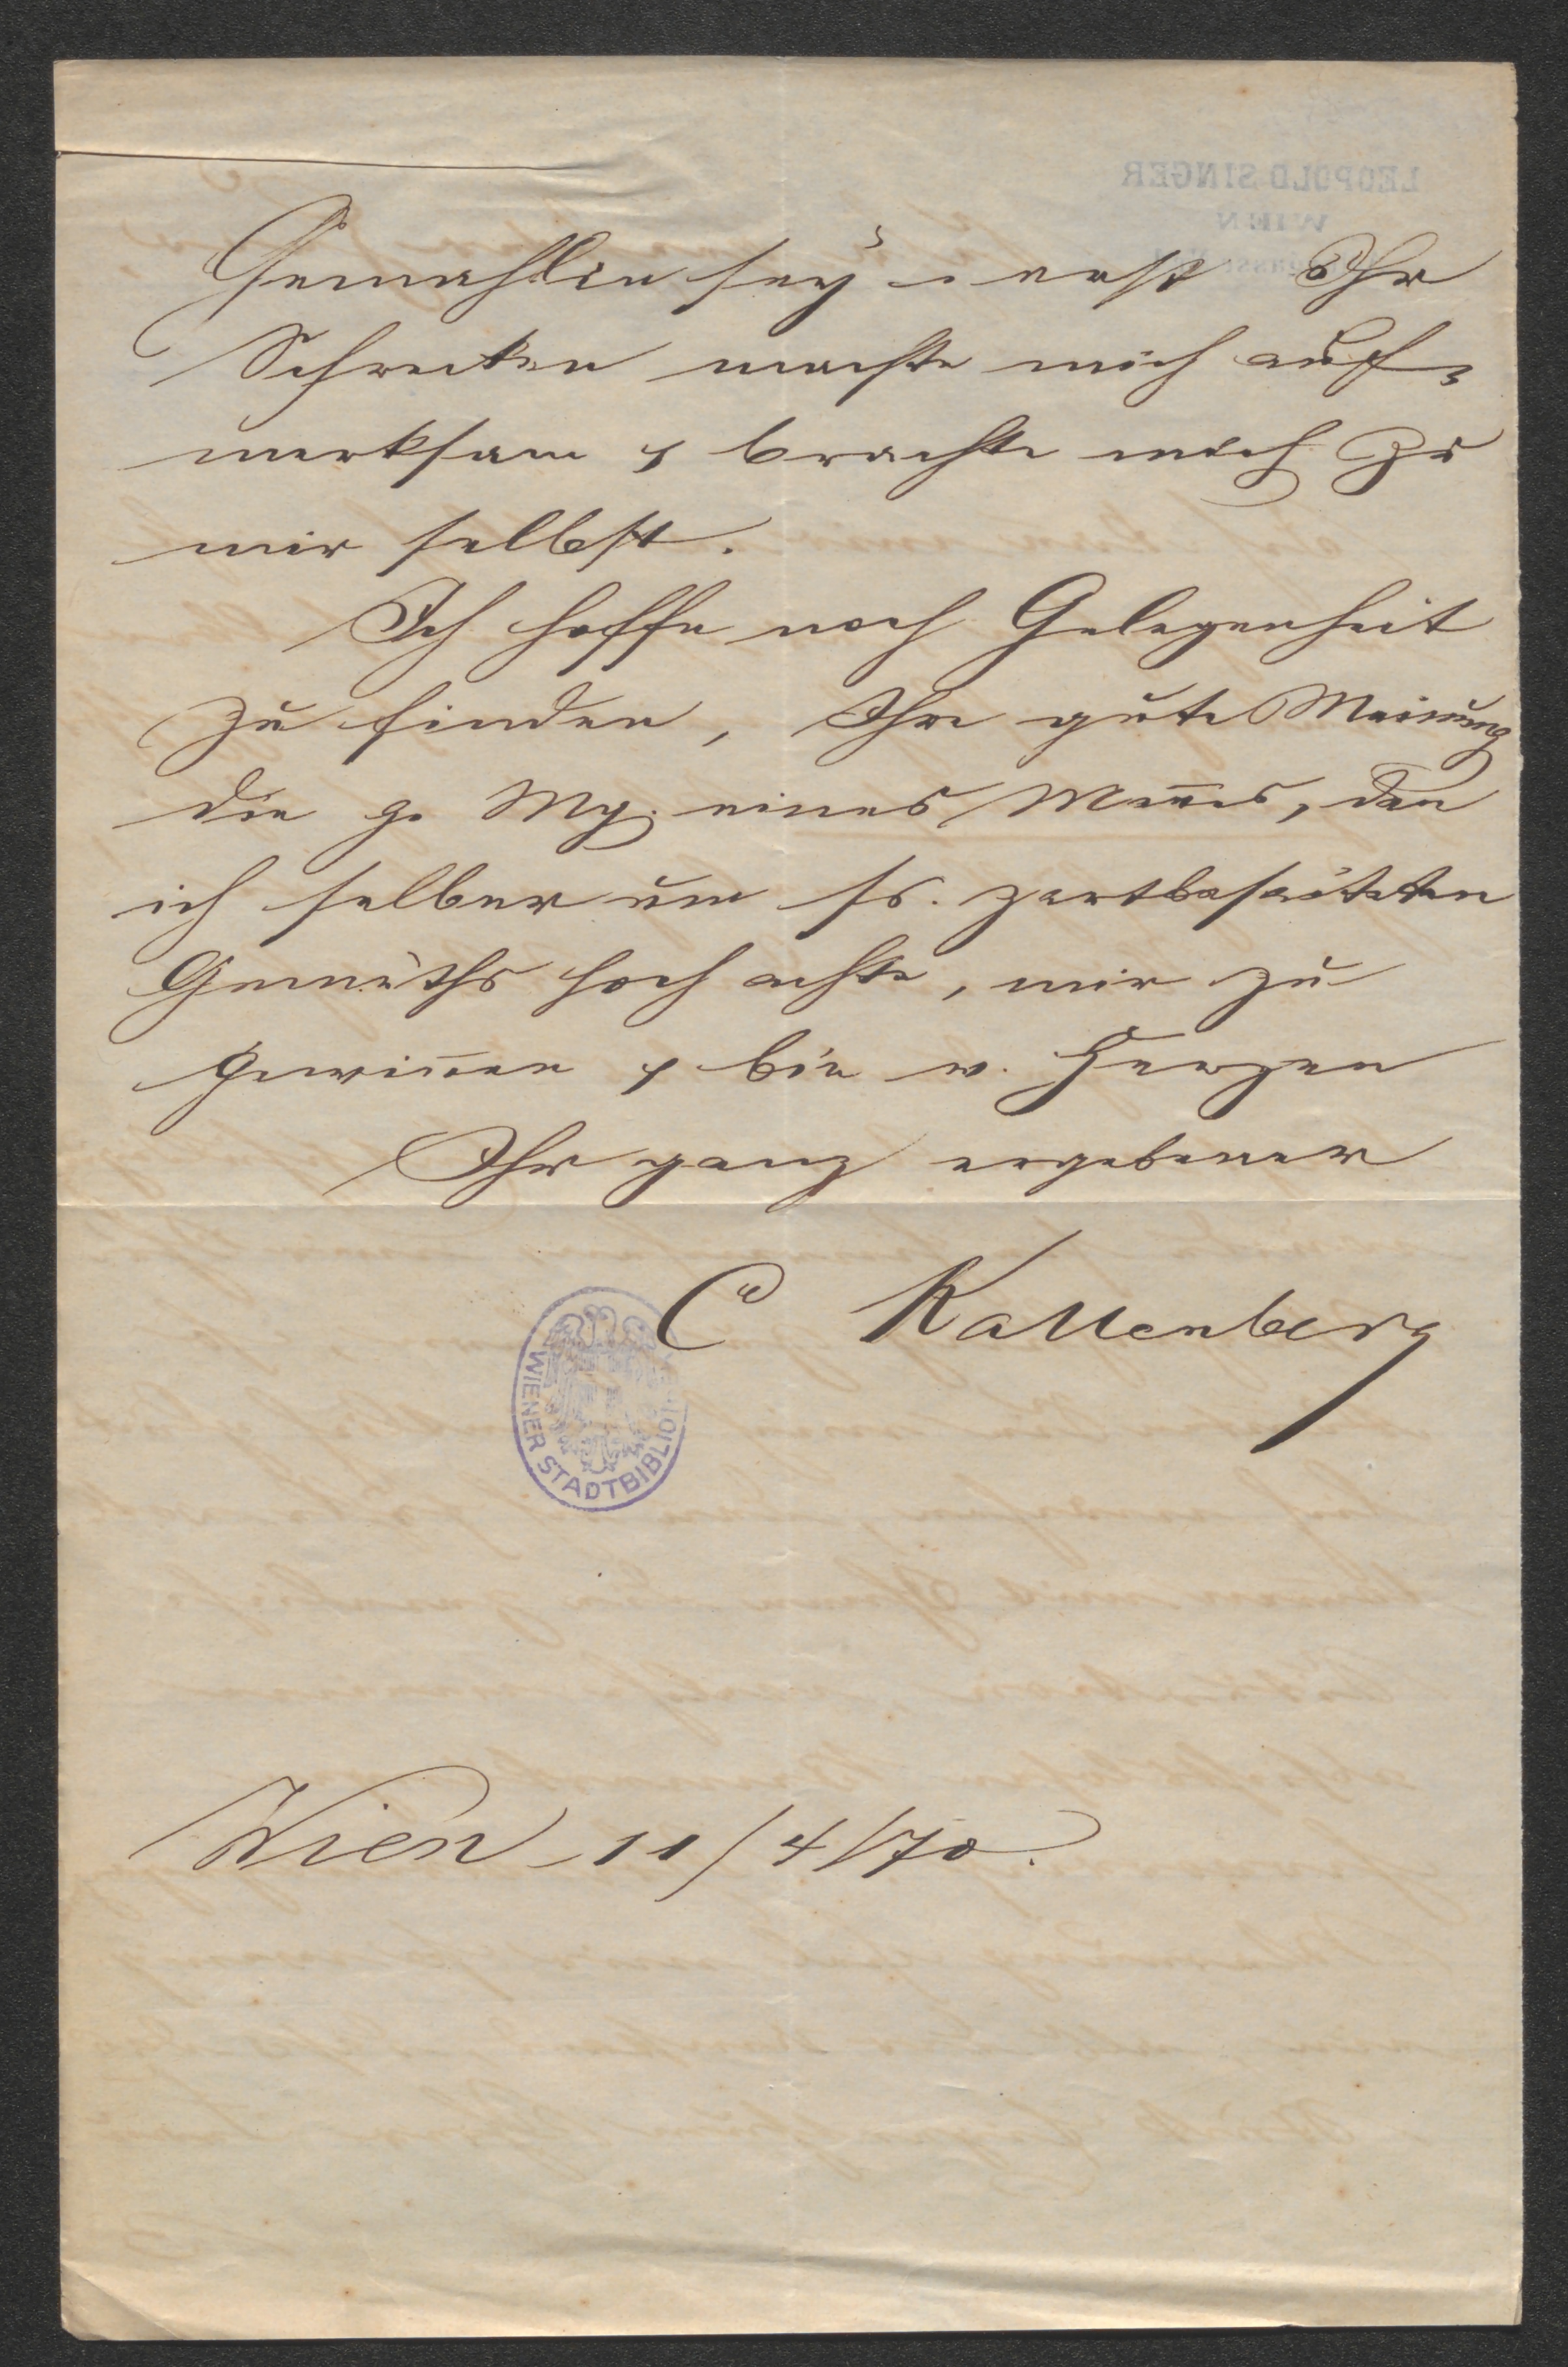 LEOPOLD SINGER
WIEN
Gemahlin sey – erst Ihr
Schrecken machte mich auf=
merksam & brachte mich zu
mir selbst.
Ich hoffe noch Gelegenheit
zu finden, Ihre gute Meinung
die g. Mg. eines Mañes, den
ich selber um sr. zartbesaiteten
Gemüths hoch achte, mir zu
gewiñen & bin v. Herzen
Ihr ganz ergebener
C Kattenberg
WIENER STADTBIBLIOT
Wien 11/4/70.